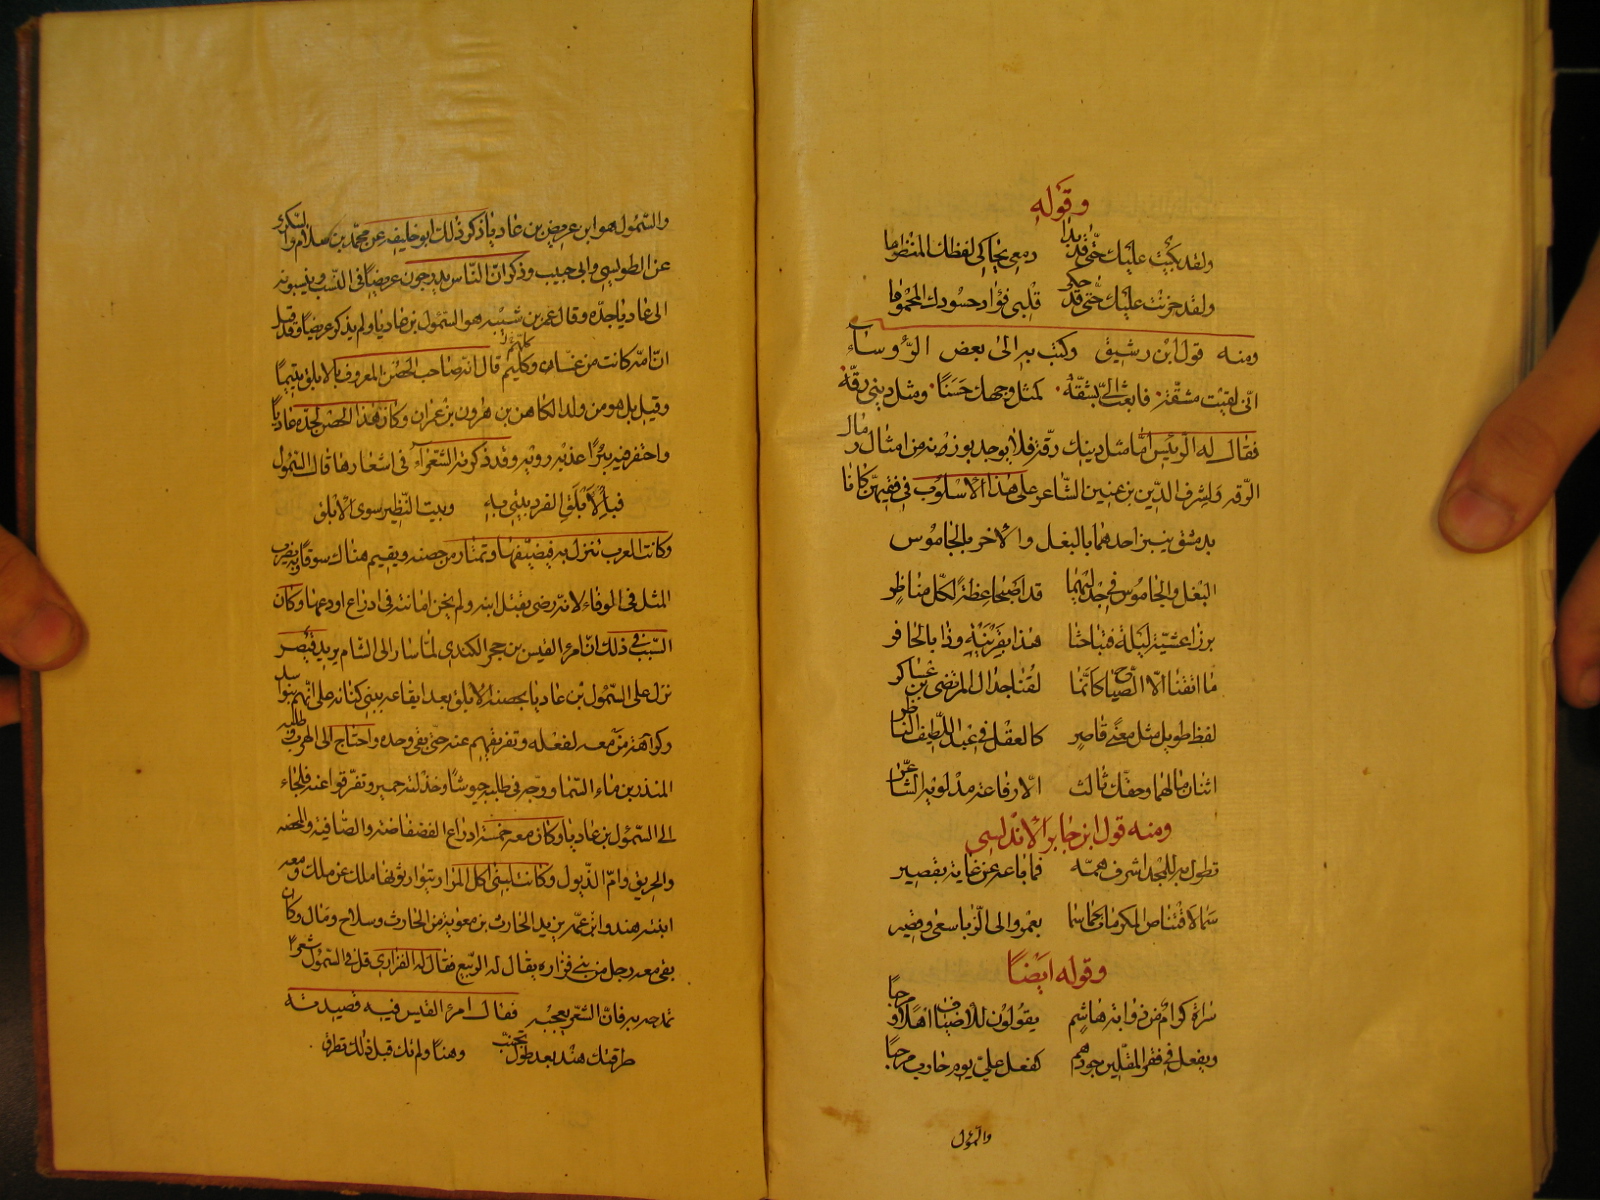 وقوله
ولقد بكيت عليك حتّى قد بدا دمعي يحاكي لفظك المنظوما
ولقد حزنت عليك حتّى قد حكى قلبي فؤاد حسودك المحموما
ومنه قول ابن رشيق وكتب به الى بعض الرؤساء
انّى لقيت مشقّة فابعث اليّ بشقّة كمثل وجهك حَسَنًا ومثل ديني رقّة
فقال له الرئيس امّا مثل دينك رقّة فلا يوجد بوزنه من امثال رمال
الرّقه ولشرف الدّين بن عنين الشّاعر على هذا الاسلوب في فقيهين كانا
بدمشق ينبز احدهما بالبغل والآخر بالجاموس
البغل والجاموس في جدليهما قد اصبحا عظة لكلّ مناظر
برزا عشيّة ليلة فتباحثا هذا بقرنيه وذا بالحافر
ما اتقنا الّا الصّياح كانّما لقنا جدال المرتضى بن عساكر
لفظ طويل مثل معنى قاصر كالعقل في عبد اللطيف الناظر
اثنان مالهما وحقّك ثالث الّا رقاعة مدلويه الشاعر
ومنه قول ابن جابر الاندلسي
تطول به للمجد اشرف همّه فما باعه عن غاية بقصير
سما لاقتناص المكرمات كما سما بعمرو الى الزبا سعى وقصير
وقوله ايضاً
سراة كرام من ذوابة هاشم يقولون للاضياف اهلا ومرحبا
ويفعل في فقر المقلّين جودهم كفعل عليّ يوم حارب مرحبا
والسّموءل
والسّموءل هو ابن عريض بن عاديا ذكر ذلك ابو خليفه عن محمّد بن سلام والسّكرى
عن الطوسي وابى حبيب وذكر انّ النّاس يدرجون عريضا في النّسب وينسبونه
الى عاديا جدّه وقال عمر بن شبّه هو السّموءل بن عاديا ولم يذكر عريضا وقد قيل
انّ امّه كانت من غسان وكلهم قال انه صاحب الحصن المعروف بالابلق بتيماً
وقيل بل هو من ولد الكاهن بن هرون بن عمران وكان هذا الحصن لجدّه عاديا
واحتفر فيه بئرًا عذبه رويه وقد ذكرته الشّعراء في اشعارها قال السّموءل
فبالابلق الفرد بيتي به وبيت النّظير سوى الابلق
وكانت العرب تنزل به فيضيّفها وتمتار من حصنه ويقيم هناك سوقا وبه يضرب
المثل في الوفاء لانه رضى بقتل ابنه ولم يخن امانته في ادراع اودعها وكان
السّبب في ذلك انّ امرء القيس بن حجر الكندى لمّا سار الى الشام يريد قيصر
نزل على السّموءل بن عاديا بحصنه الابلق بعد ايقاعه ببني كنانه على انّهم بنو اسد
وكراهة من معه لفعله وتفرّقهم عنه حتّى بقى وحده واحتاج الى الهرب وطلبه
المنذر بن ماء السّما ووجّه في طلبه جيوشا وخذلته حمير وتفرّقوا عنه فلجاء
الى السّموءل بن عاديا وكان معه خمسة ادراع الفضفاضة والضّافية والمحضه
والحريق وامّ الذّيول وكانت لبني آكل المرار يتوارثونها ملك عن ملك ومعه
ابنته هند وابن عمّه يزيد الحارث بن معويه بن الحارث وسلاح ومال وكان
بقى معه رجل من بني فزاره يقال له الربيع فقال له الفزارى قل في السّموءل شعرًا
تمدحه به فانّ الشّعر يعجبه فقال امرء القيس فيه قصيدته
طرقتك هند بعد طول تجنّب وهنًا ولم تك قبل ذلك تطرق